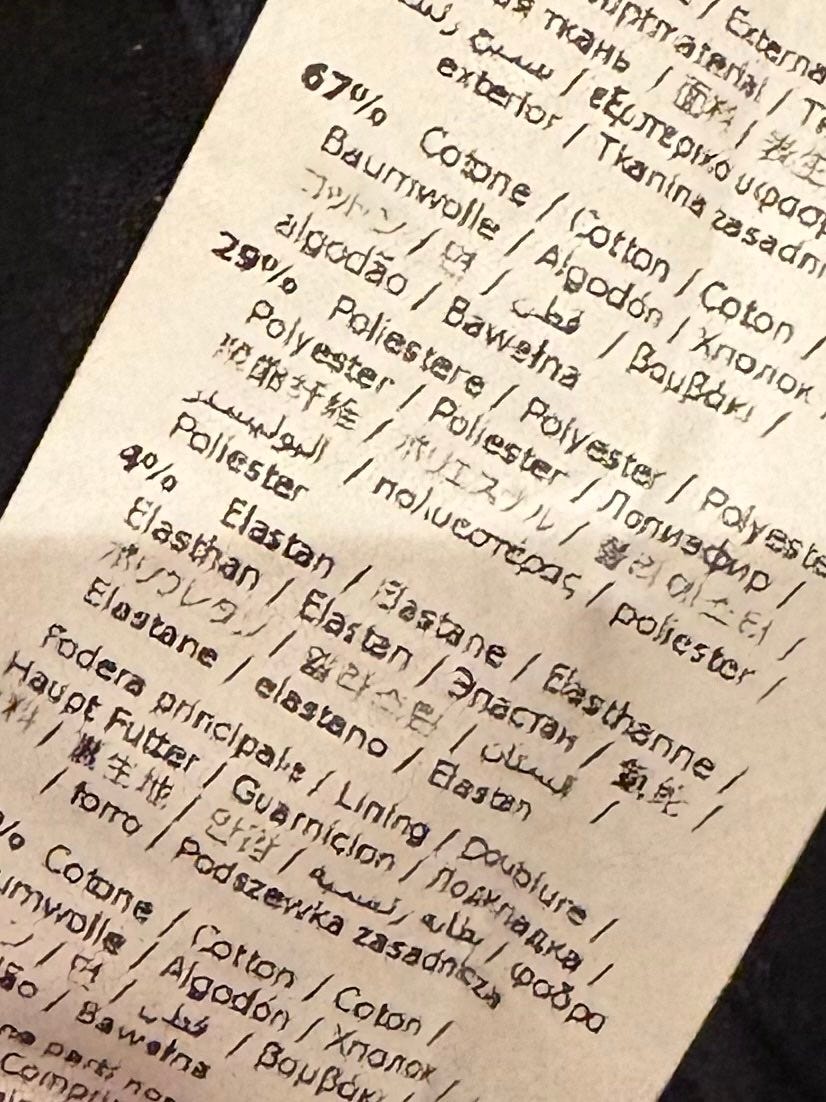 / Externa
ткань / 面料 / 表生
exterior / Tkanina zasadni
67% Cotone / Cotton / Coton /
Baumwolle / Algodón / Хлопок /
コットン / 면 / قطن / Βαμβάκι /
algodão / Bawełna
29% Poliestere / Polyester / Polyeste
Polyester / Poliester / Полиэфир /
聚酯纤维 / ポリエステル / 폴리에스터 /
البوليستر / πολυεστέρας / poliester /
Poliester
4% Elastan / Elastane / Elasthanne /
Elasthan / Elastan / Эластан / 氨纶 /
ポリウレタン / 엘라스탄 / الستان /
Elastane / elastano / Elastan
Fodera principale / Lining / Doublure /
Haupt Futter / Guarnicion / Подкладка /
料 / 裏生地 / 안감 / بطانه رئسميه / φοδρα
/ forro / Podszewka zasadnicza
% Cotone / Cotton / Coton /
umwolle / Algodón / Хлопок /
ン / 면 / قطن / Βαμβάκι
dão / Bawełna
parti non